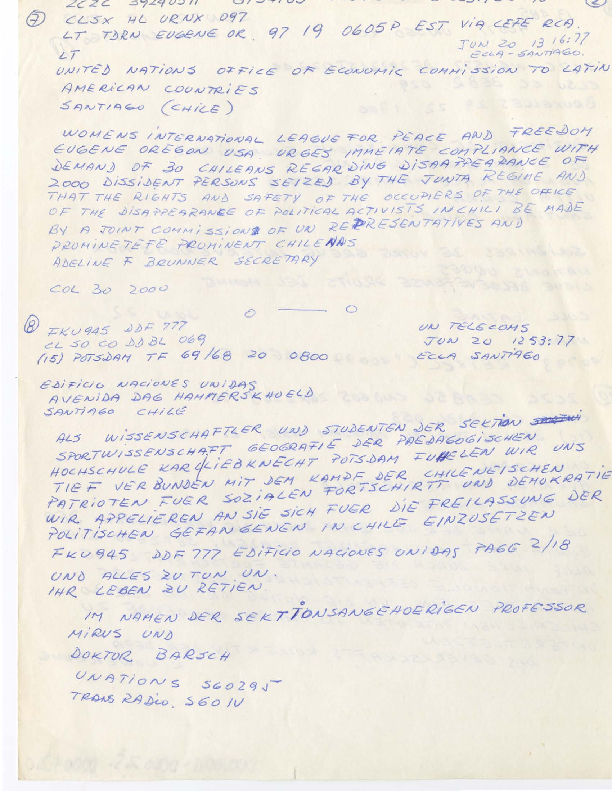 7
CLSX HL URNX 097
LT TDRN EUGENE OR. 97 19 0605P EST VIA CEFE RCA.
LT
JUN 20 13 16:77
ECLA - SANTIAGO.
UNITED NATIONS OFFICE OF ECONOMIC COMMISSION TO LATIN
AMERICAN COUNTRIES
SANTIAGO (CHILE)
WOMENS INTERNATIONAL LEAGUE FOR PEACE AND FREEDOM
EUGENE OREGON USA URGES IMMEIATE COMPLIANCE WITH
DEMAND OF 30 CHILEANS REGARDING DISAAPPEARANCE OF
2000 DISSIDENT PERSONS SEIZED BY THE JUNTA REGIME AND
THAT THE RIGHTS AND SAFETY OF THE OCCUPIERS OF THE OFFICE
OF THE DISAPPEARANCE OF POLITICAL ACTIVISTS IN CHILI BE MADE
BY A JOINT COMMISSION OF UN REPRESENTATIVES AND
PROMINETEFE PROMINENT CHILENAS
ADELINE F BRUNNER SECRETARY
COL 30 2000
8
FKU945 DDF 777
CL SO CO DDBL 069
(15) POTSDAM TF 69/68 20 0800
UN TELECOMS
JUN 20 1253:77
ECLA SANTIAGO
EDIFICIO NACIONES UNIDAS
AVENIDA DAG HAMMERSKHOELD
SANTIAGO CHILE
ALS WISSENSCHAFTLER UND STUDENTEN DER SEKTION
SPORTWISSENSCHAFT GEOGRAFIE DER PAEDAGOGISCHEN
HOCHSCHULE KARL LIEBKNECHT POTSDAM FUHELEN WIR UNS
TIEF VERBUNDEN MIT DEM KAMPF DER CHILENEISCHEN
PATRIOTEN FUER SOZIALEN FORTSCHIRTT UND DEMOKRATIE
WIR APPELIEREN AN SIE SICH FUER DIE FREILASSUNG DER
POLITISCHEN GEFANGENEN IN CHILE EINZUSETZEN
FKU945 DDF777 EDIFICIO NACIONES UNIDAS PAGE 2/18
UND ALLES ZU TUN UN.
IHR LEBEN ZU RETIEN.
IM NAMEN DER SEKTIONSANGEHOERIGEN PROFESSOR
MIRUS UND
DOKTOR BARSCH
UNATIONS S60295
TRANS RADIO. S60 IU